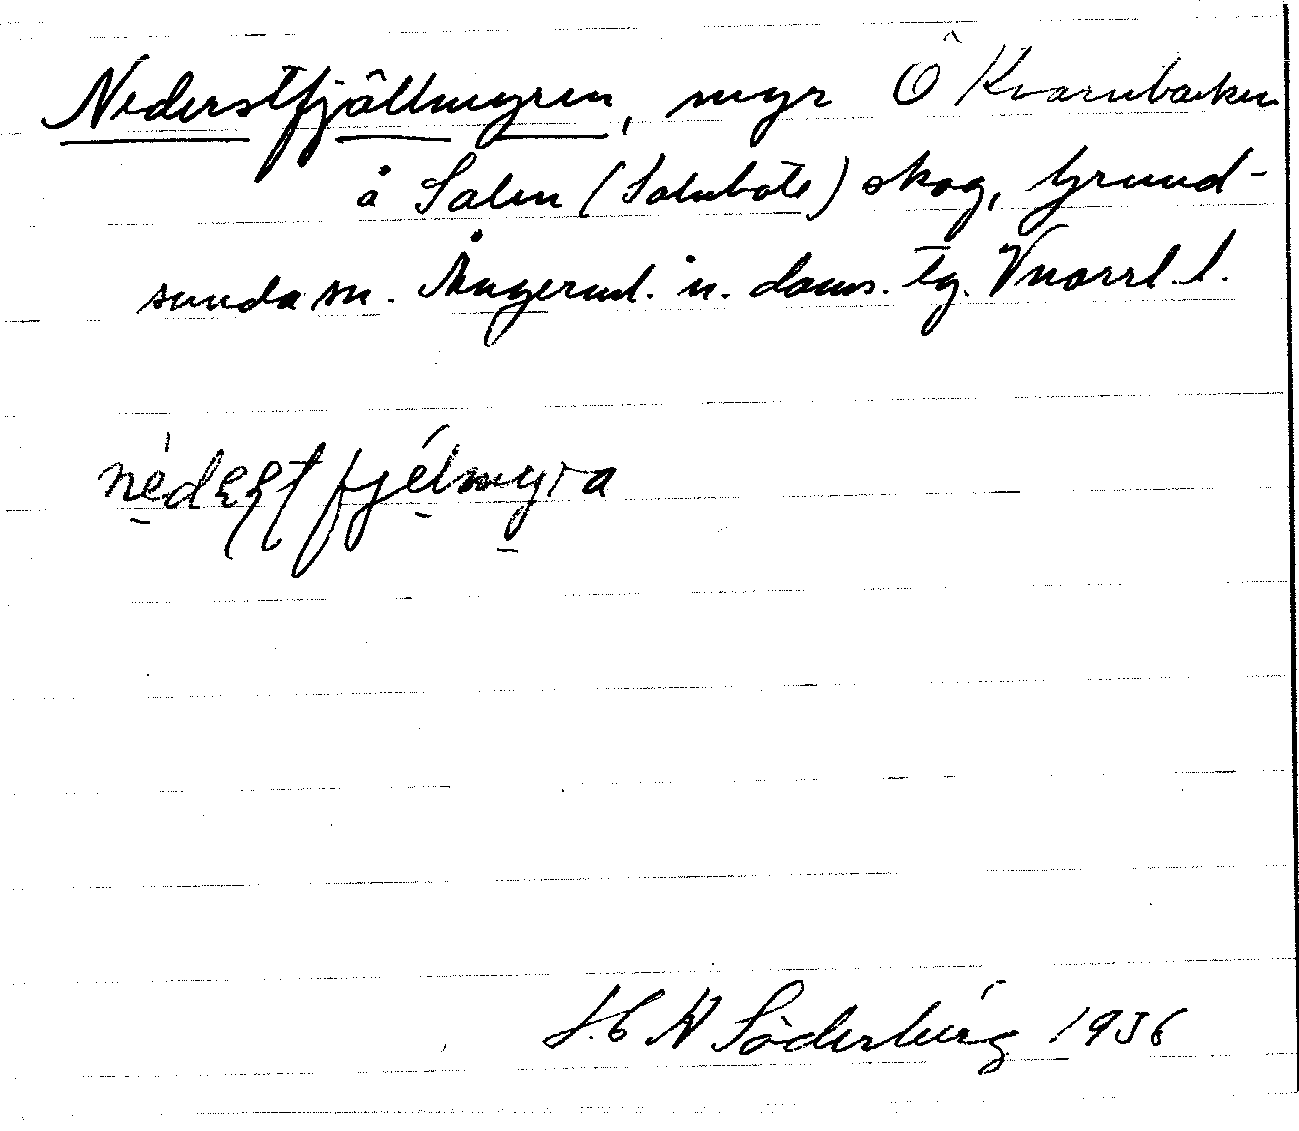 Nederstfjällmyren, myr Ö Kvarnbacken
å Salen (Salubole) skog, Grund-
sunda sn. Ångerml. n. doms. tg. Vnorrl. l.
nédeʂʈfjélmyra
Söderberg 1936